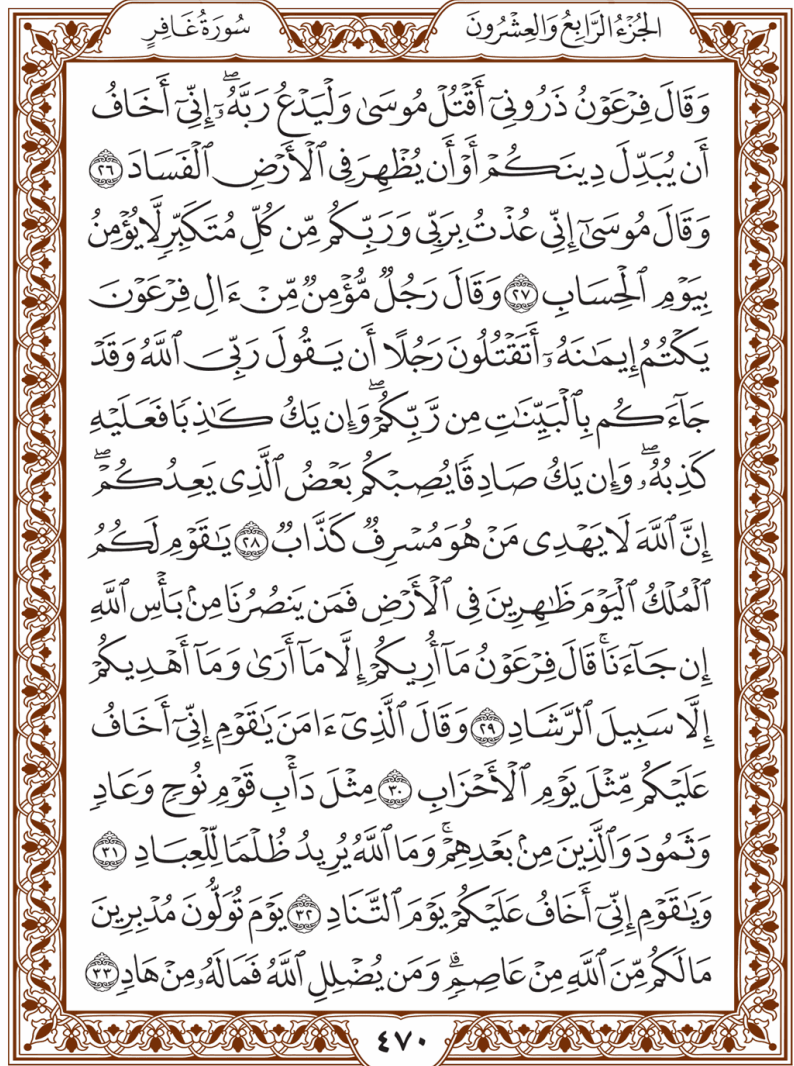 الجُزْءُ الرَّابِعُ وَالعِشْرُونَ
سُورَةُ غَافِرٍ
وَقَالَ فِرۡعَوۡنُ ذَرُونِيٓ أَقۡتُلۡ مُوسَىٰ وَلۡيَدۡعُ رَبَّهُۥٓۖ إِنِّيٓ أَخَافُ
أَن يُبَدِّلَ دِينَكُمۡ أَوۡ أَن يُظۡهِرَ فِي ٱلۡأَرۡضِ ٱلۡفَسَادَ ٢٦
وَقَالَ مُوسَىٰٓ إِنِّي عُذۡتُ بِرَبِّي وَرَبِّكُم مِّن كُلِّ مُتَكَبِّرٖ لَّا يُؤۡمِنُ
بِيَوۡمِ ٱلۡحِسَابِ ٢٧ وَقَالَ رَجُلٞ مُّؤۡمِنٞ مِّنۡ ءَالِ فِرۡعَوۡنَ
يَكۡتُمُ إِيمَٰنَهُۥٓ أَتَقۡتُلُونَ رَجُلًا أَن يَقُولَ رَبِّيَ ٱللَّهُ وَقَدۡ
جَآءَكُم بِٱلۡبَيِّنَٰتِ مِن رَّبِّكُمۡۖ وَإِن يَكُ كَٰذِبٗا فَعَلَيۡهِ
كَذِبُهُۥۖ وَإِن يَكُ صَادِقٗا يُصِبۡكُم بَعۡضُ ٱلَّذِي يَعِدُكُمۡۖ
إِنَّ ٱللَّهَ لَا يَهۡدِي مَنۡ هُوَ مُسۡرِفٞ كَذَّابٞ ٢٨ يَٰقَوۡمِ لَكُمُ
ٱلۡمُلۡكُ ٱلۡيَوۡمَ ظَٰهِرِينَ فِي ٱلۡأَرۡضِ فَمَن يَنصُرُنَا مِنۢ بَأۡسِ ٱللَّهِ
إِن جَآءَنَاۚ قَالَ فِرۡعَوۡنُ مَآ أُرِيكُمۡ إِلَّا مَآ أَرَىٰ وَمَآ أَهۡدِيكُمۡ
إِلَّا سَبِيلَ ٱلرَّشَادِ ٢٩ وَقَالَ ٱلَّذِيٓ ءَامَنَ يَٰقَوۡمِ إِنِّيٓ أَخَافُ
عَلَيۡكُم مِّثۡلَ يَوۡمِ ٱلۡأَحۡزَابِ ٣٠ مِثۡلَ دَأۡبِ قَوۡمِ نُوحٖ وَعَادٖ
وَثَمُودَ وَٱلَّذِينَ مِنۢ بَعۡدِهِمۡۚ وَمَا ٱللَّهُ يُرِيدُ ظُلۡمٗا لِّلۡعِبَادِ ٣١
وَيَٰقَوۡمِ إِنِّيٓ أَخَافُ عَلَيۡكُمۡ يَوۡمَ ٱلتَّنَادِ ٣٢ يَوۡمَ تُوَلُّونَ مُدۡبِرِينَ
مَا لَكُم مِّنَ ٱللَّهِ مِنۡ عَاصِمٖۗ وَمَن يُضۡلِلِ ٱللَّهُ فَمَا لَهُۥ مِنۡ هَادٖ ٣٣
٤٧٠